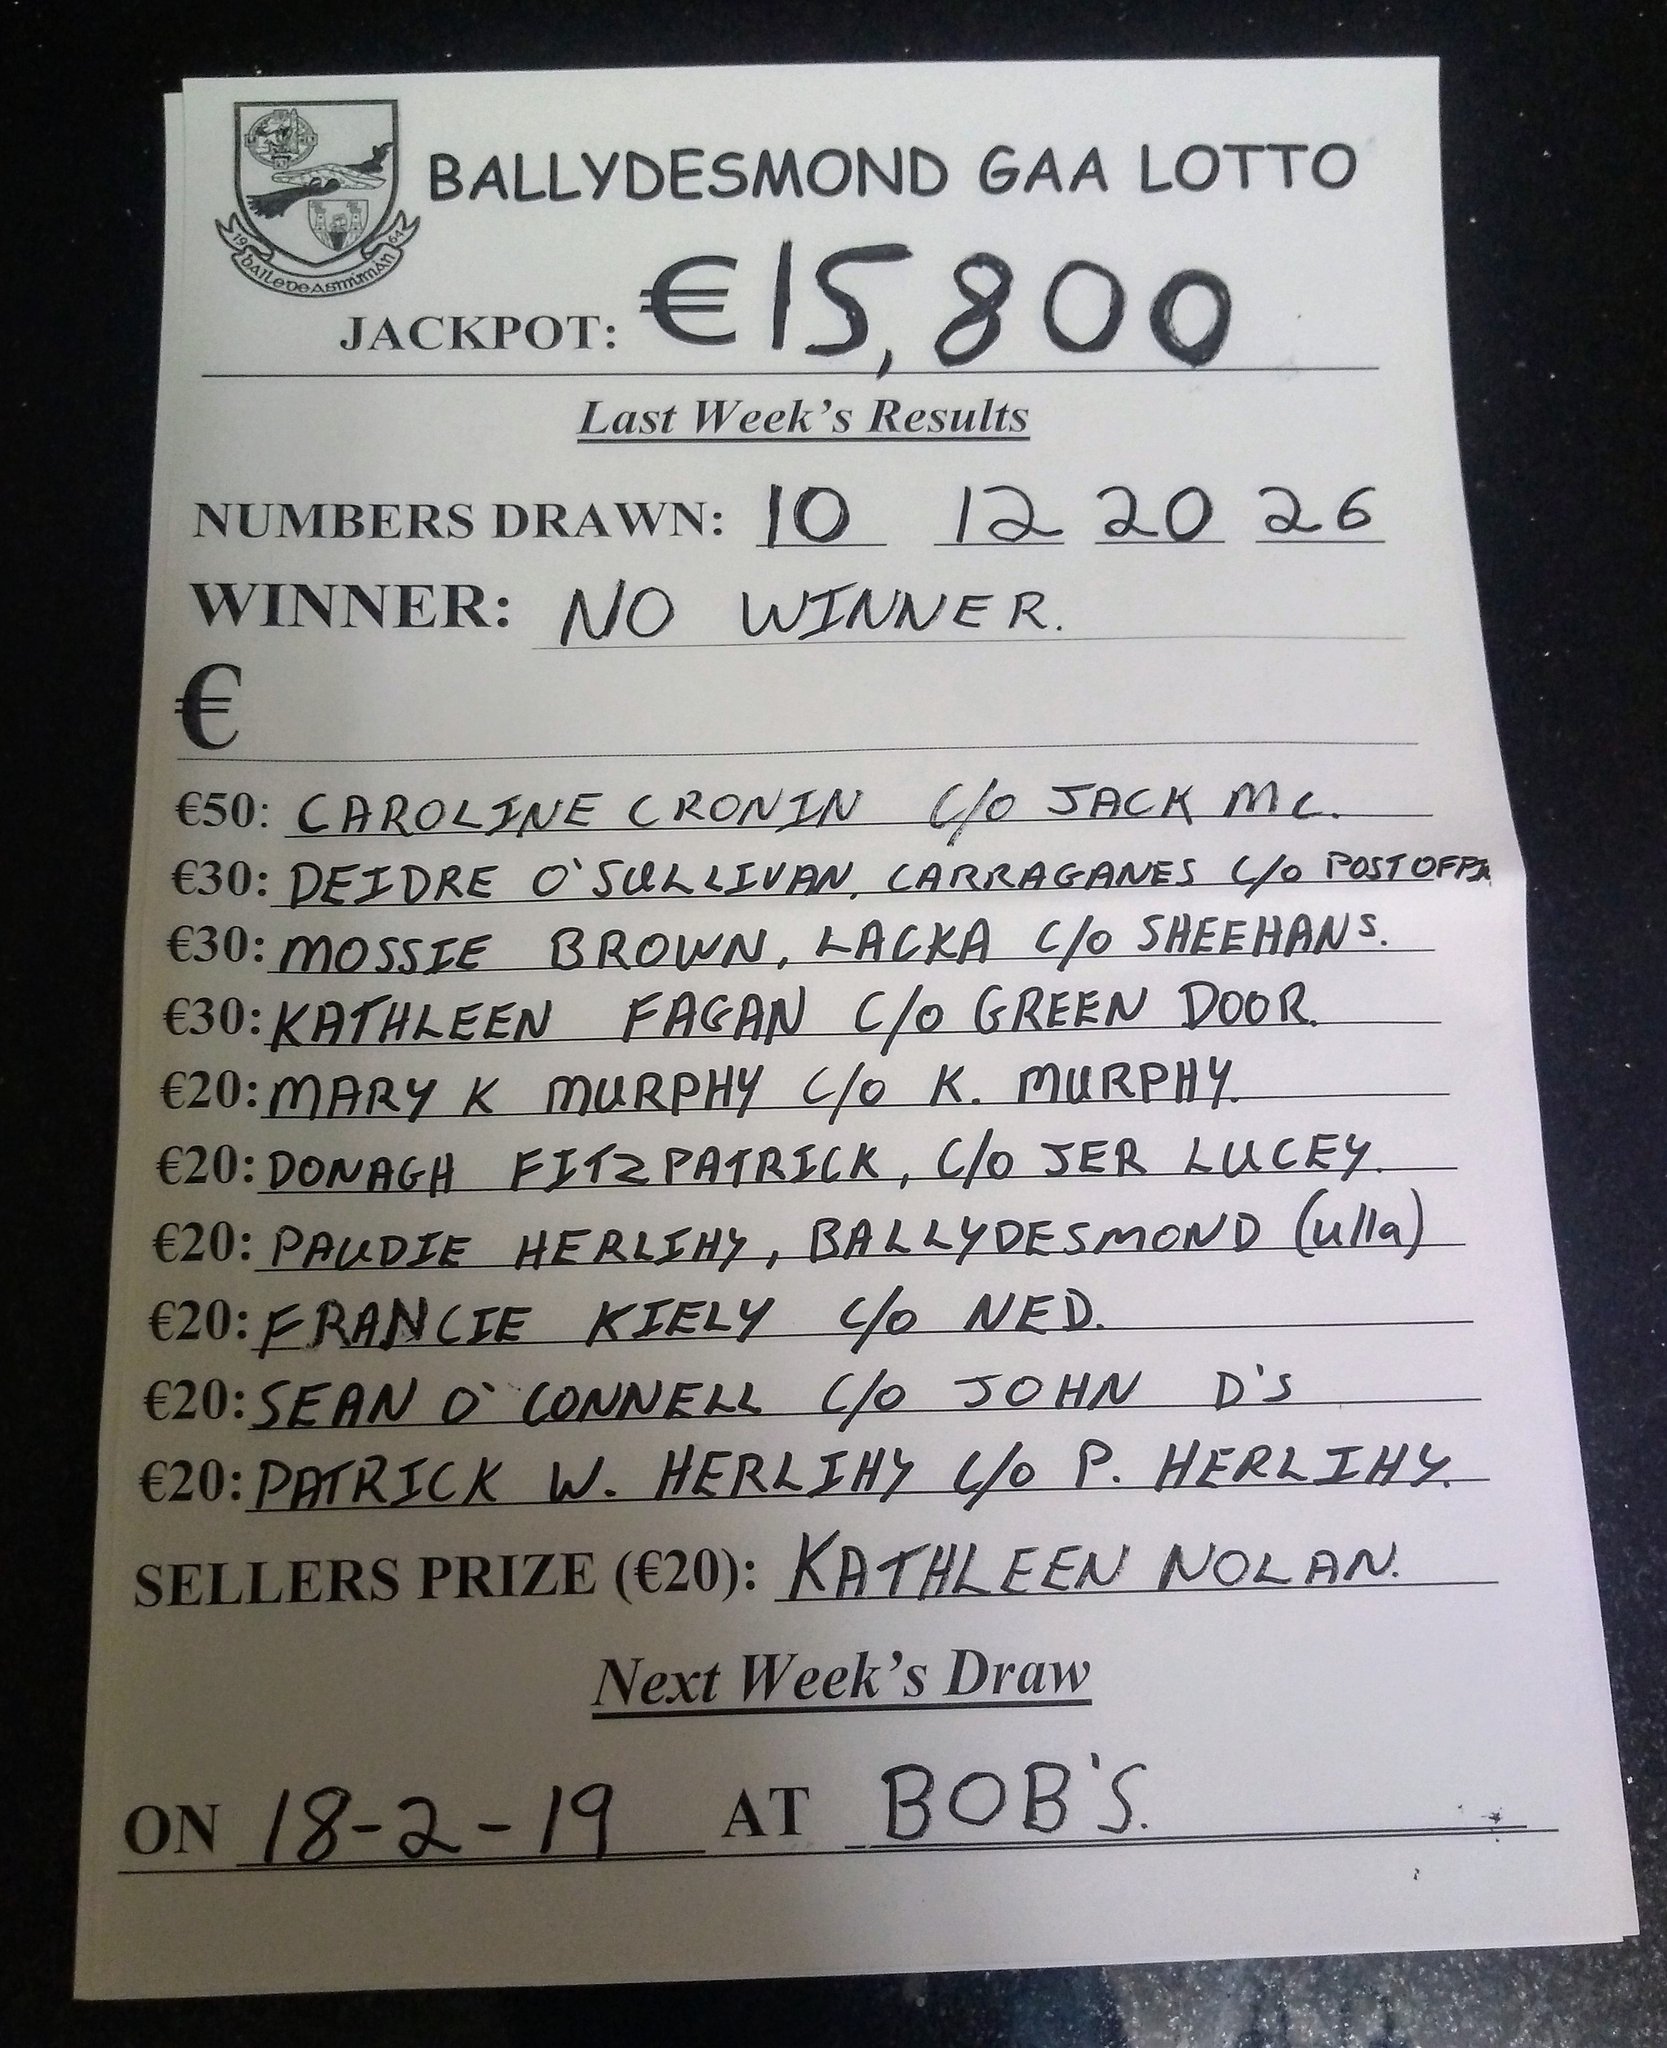 BALLYDESMOND GAA LOTTO
19 64
JACKPOT: €15,800
Last Week's Results
NUMBERS DRAWN: 10 12 20 26
WINNER: NO WINNER.
€
€50: CAROLINE CRONIN C/O JACK MC.
€30: DEIDRE O'SULLIVAN, CARRAGANES C/O POST
€30: MOSSIE BROWN, LACKA C/O SHEEHANS.
€30: KATHLEEN FAGAN C/O GREEN DOOR.
€20: MARY K MURPHY C/O K. MURPHY.
€20: DONAGH FITZPATRICK, C/O JER LUCEY.
€20: PAUDIE HERLIHY, BALLYDESMOND (ulla)
€20: FRANCIE KIELY C/O NED.
€20: SEAN O'CONNELL C/O JOHN D'S
€20: PATRICK W. HERLIHY C/O P. HERLIHY.
SELLERS PRIZE (€20): KATHLEEN NOLAN.
Next Week's Draw
ON 18-2-19 AT BOB'S.